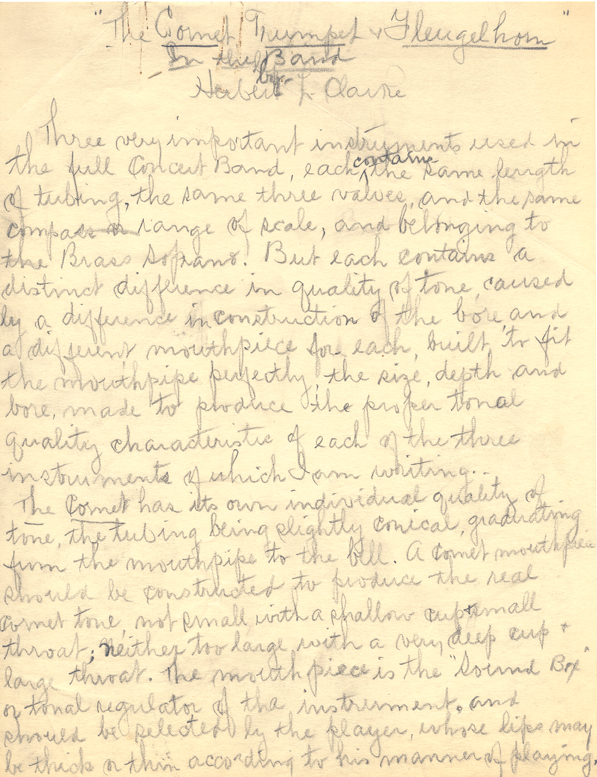 "The Cornet Trumpet & Fleugelhorn"
In the Band
by
Herbert L Clarke
Three very important instruments used in
the full Concert Band, each contains the same length
of tubing, the same three valves, and the same
compass or range of scale, and belonging to
the Brass Soprano. But each contains a
distinct difference in quality of tone, caused
by a difference in construction of the bore, and
a different mouthpiece for each, built, to fit
the mouthpipe perfectly, the size, depth and
bore, made to produce the proper tonal
quality characteristic of each of the three
instruments of which I am writing..
The Cornet has its own individual quality of
tone, the tubing being slightly conical, graduating
from the mouthpipe to the bell. A Cornet mouthpiece
should be constructed to produce the real
cornet tone not small with a shallow cup & small
throat; neither too large with a very deep cup &
large throat. The mouthpiece is the "Sound Box"
or tonal regulator of the instrument, and
should be selected by the player, whose lips may
be thick or thin according to his manner of playing.